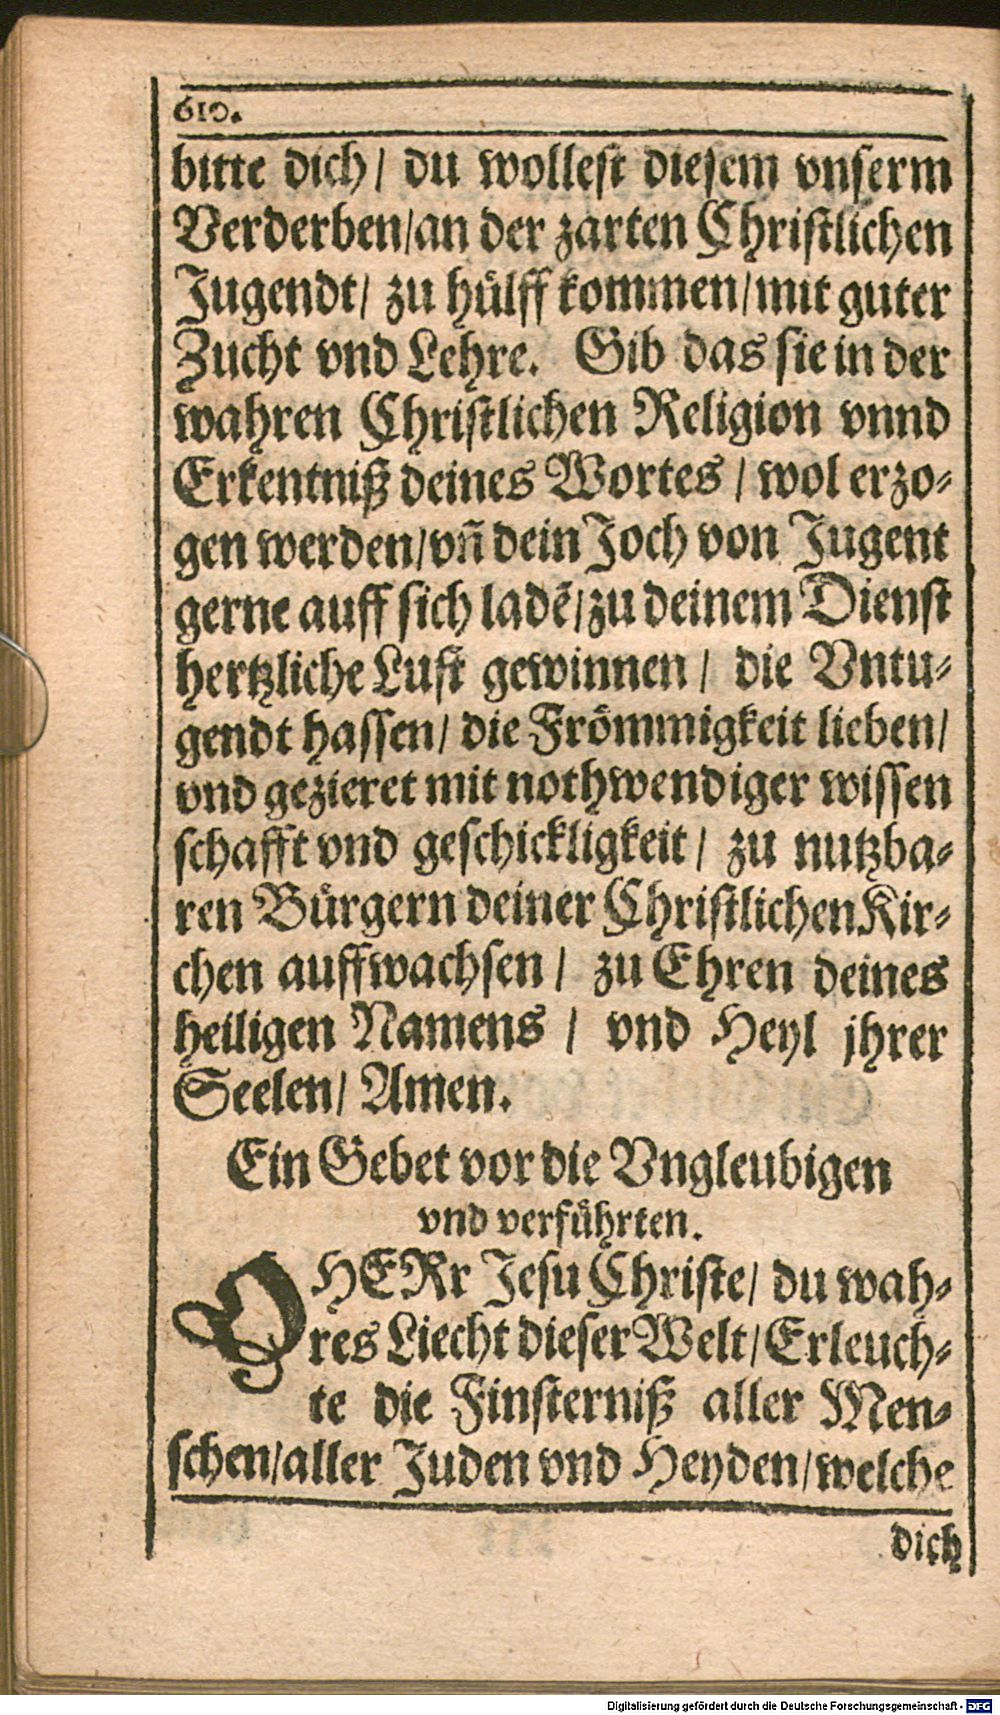 610.
bitte dich/ du wollest diesem vnserm
Verderben/an der zarten Christlichen
Jugendt/ zu hülff kommen/mit guter
Zucht vnd Lehre. Gib das sie in der
wahren Christlichen Religion vnnd
Erkentniß deines Wortes / wol erzo-
gen werden/vñ dein Joch von Jugent
gerne auff sich ladẽ/zu deinem Dienst
hertzliche Lust gewinnen / die Vntu-
gendt hassen/ die Frömmigkeit lieben/
vnd gezieret mit nothwendiger wissen
schafft vnd geschickligkeit / zu nutzba-
ren Bürgern deiner Christlichen Kir-
chen auffwachsen / zu Ehren deines
heiligen Namens / vnd Heyl jhrer
Seelen/ Amen.
Ein Gebet vor die Vngleubigen
vnd verführten.
O HERr Jesu Christe/ du wah-
res Liecht dieser Welt/Erleuch-
te die Finsterniß aller Men-
schen/aller Juden vnd Heyden/welche
dich
Digitalisierung gefördert durch die Deutsche Forschungsgemeinschaft - DFG